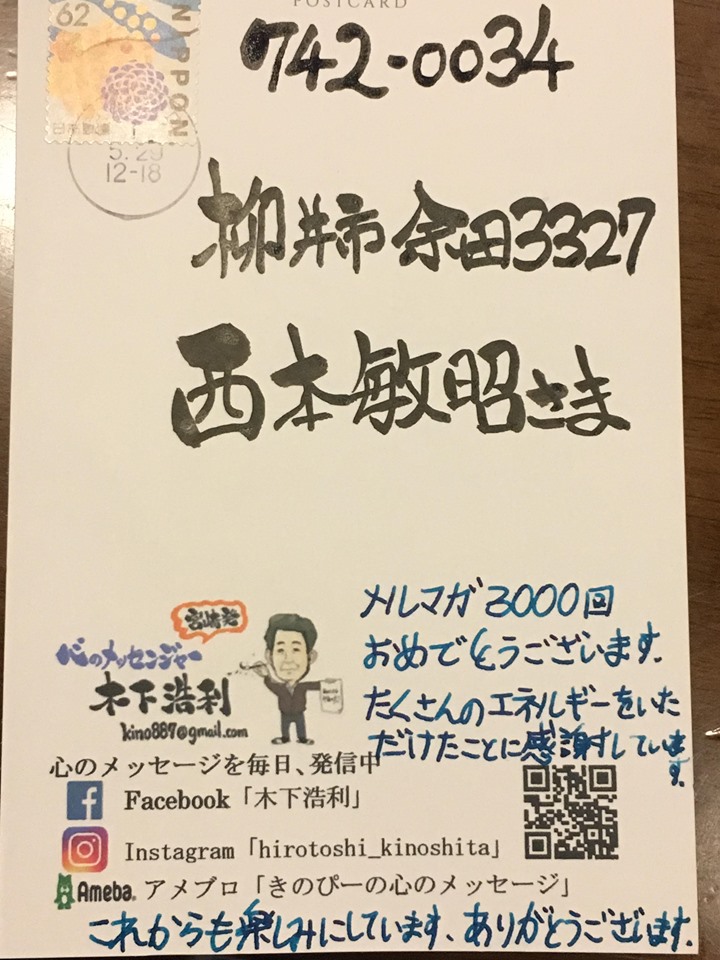 POSTCARD
62
NIPPON
日本郵便
5.29
12-18
742-0034
柳井市余田3327
西本敏昭さま
メルマガ3000回
おめでとうございます。
たくさんのエネルギーをいた
だけたことに感謝しています。
宮崎発
心のメッセンジャー
木下浩利
kino887@gmail.com
心のメッセージを毎日、発信中
Facebook「木下浩利」
Instagram「hirotoshi_kinoshita」
Ameba. アメブロ「きのぴーの心のメッセージ」
これからも楽しみにしています、ありがとうございます。